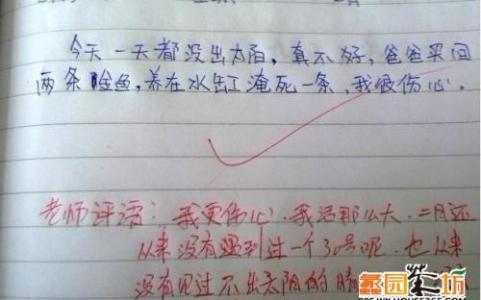 今天一天都没出太阳,真不好,爸爸买回
两条鱼,养在水缸淹死一条,我很伤心.
老师评语:我更伤心.我活那么大.二月还
从来没有遇到过一个30号呢.也从来
没有见过不出太阳的晴